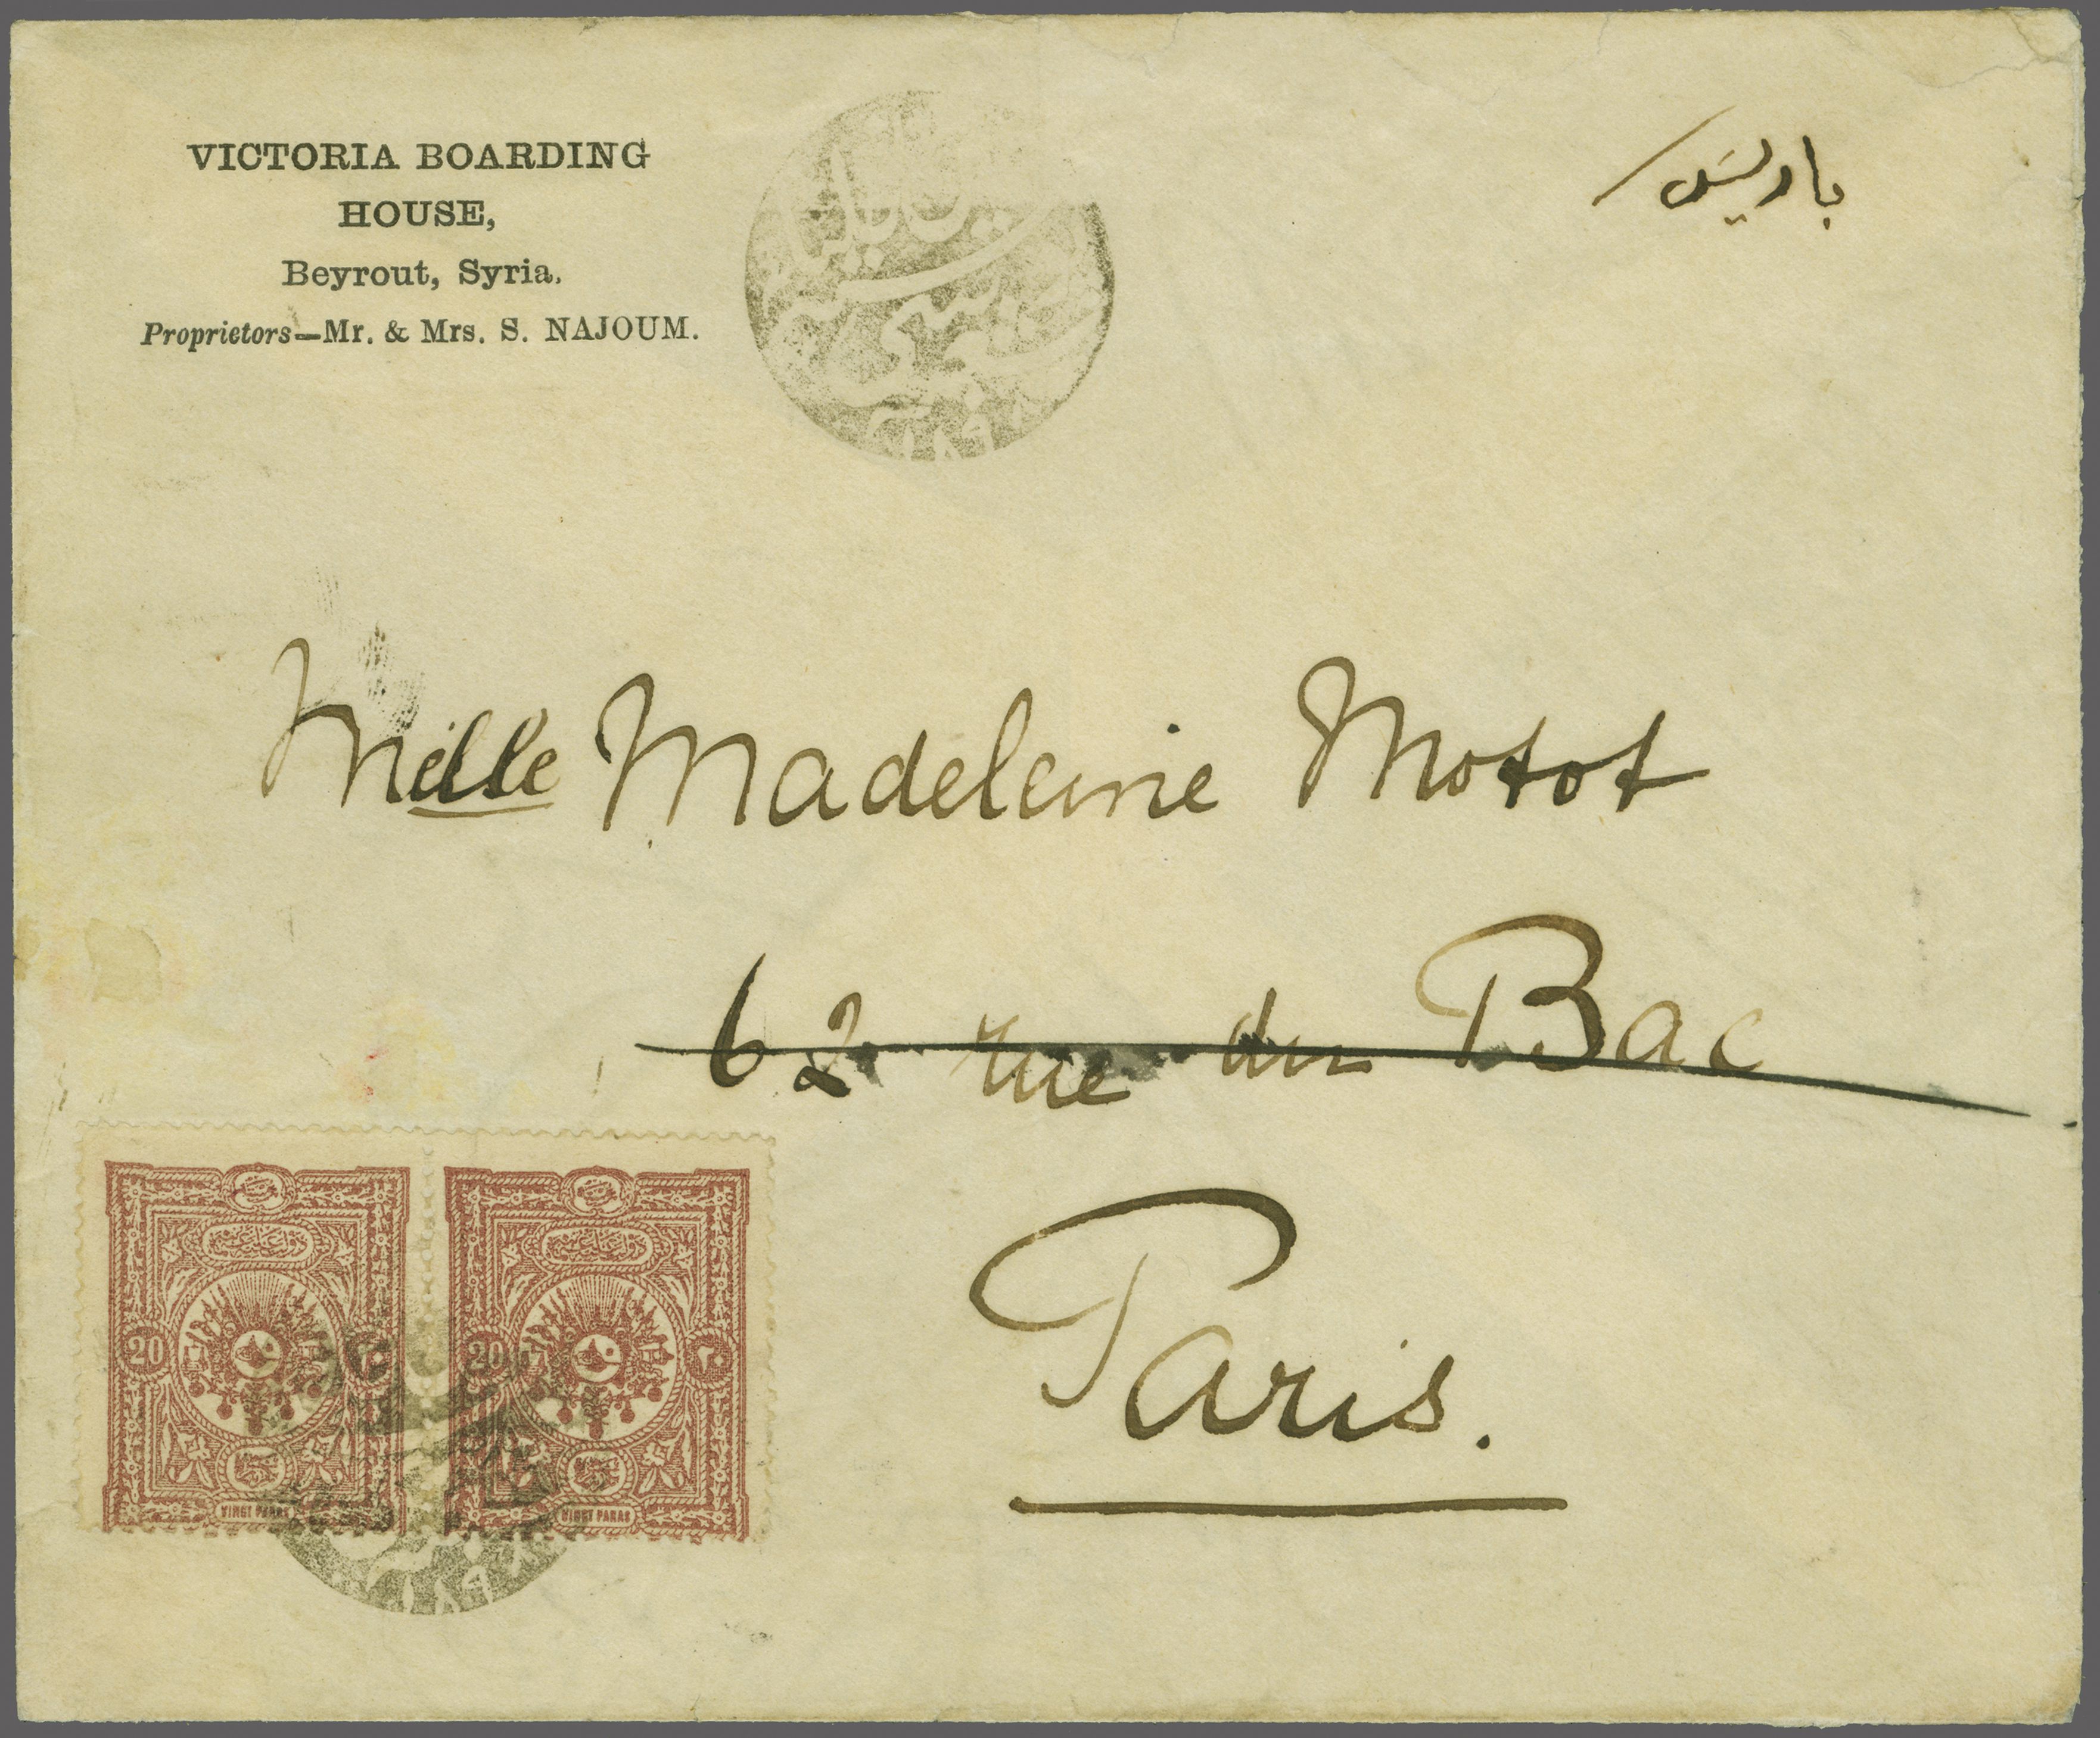 VICTORIA BOARDING
HOUSE,
Beyrout, Syria.
Proprietors—Mr. & Mrs. S. NAJOUM.
باريس
Melle Madeleine Motot
62 rue du Bac
Paris.
20 ٢٠
VINGT PARAS
20 ٢٠
VINGT PARAS